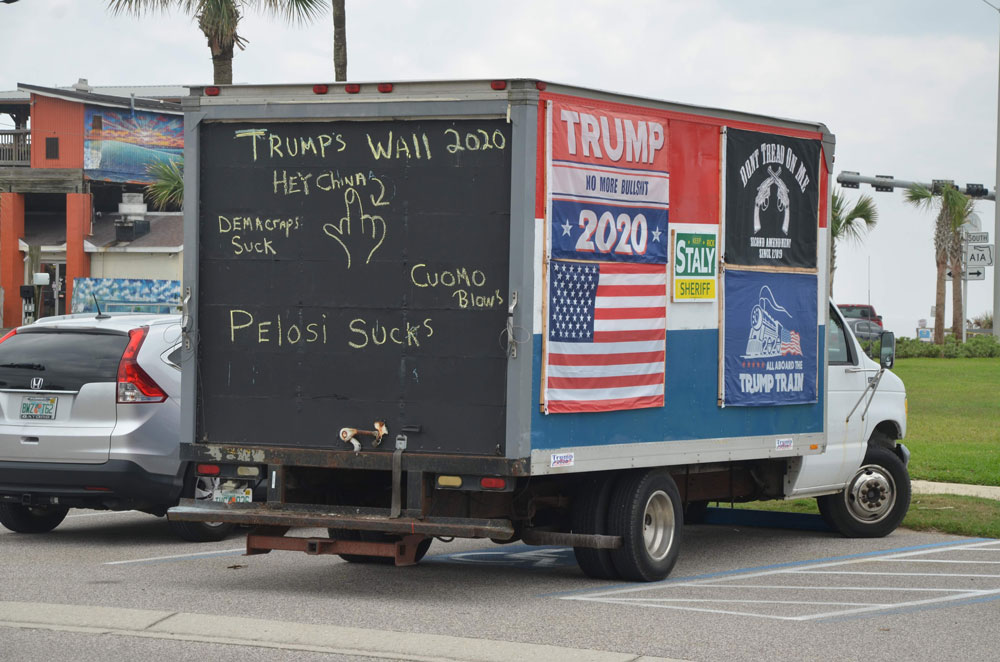 TRUMP'S WALL 2020
HEY CHINA
DEMACRAPS
SUCK
CUOMO
BLOWS
PELOSI SUCKS
TRUMP
NO MORE BULLSHIT
2020
STALY
SHERIFF
DONT TREAD ON ME
SECOND AMENDMENT
SINCE 1789
ALL ABOARD THE
TRUMP TRAIN
Trump
Trump
SOUTH
A1A